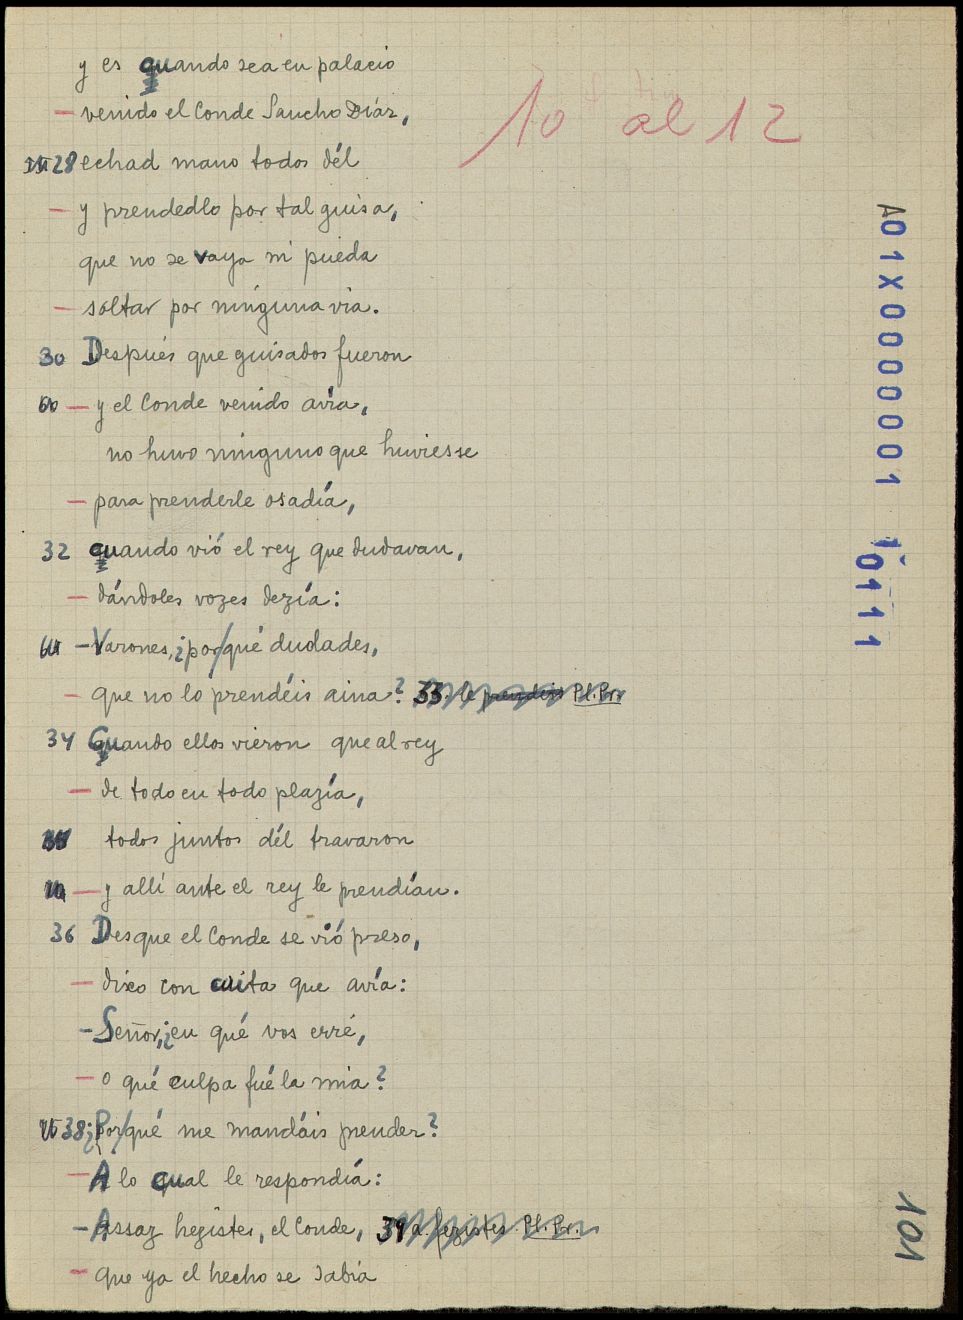 y es quando sea en palacio
— venido el Conde Sancho Díaz,
10 al 12
28 echad mano todos dél
— y prendedlo por tal guisa,
que no se vaya ni pueda
— soltar por ninguna via.
30 Después que guisados fueron
60 — y el Conde venido avía,
no huvo ninguno que huviesse
— para prenderle osadía,
32 cuando vió el rey que dudavan,
— dándoles vozes dezía:
—Varones, ¿por/qué dudades,
— que no lo prendéis aina? 33 le prendeis Pl. Pr.
34 Cuando ellos vieron que al rey
— de todo en todo plazía,
todos juntos dél travaron
— y allí ante el rey le prendían.
36 Desque el Conde se vió preso,
— dixo con cuita que avía:
—Señor, ¿en qué vos erré,
— o qué culpa fué la mia?
38 ¿Por/qué me mandáis prender?
— A lo cual le respondía:
—Assaz hezistes, el Conde, 39 a. fezistes Pl. Pr.
— que ya el hecho se sabía
A01X0000001
10111
101